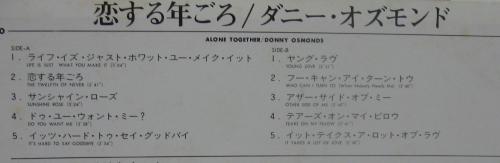 恋する年ごろ/ダニー・オズモンド
ALONE TOGETHER/DONNY OSMONDS
SIDE-A
1. ライフ・イズ・ジャスト・ホワット・ユー・メイク・イット
LIFE IS JUST WHAT YOU MAKE IT
2. 恋する年ごろ
THE TWELFTH OF NEVER
3. サンシャイン・ローズ
SUNSHINE ROSE
4. ドゥ・ユー・ウォント・ミー?
DO YOU WANT ME
5. イッツ・ハード・トゥ・セイ・グッドバイ
IT'S HARD TO SAY GOODBYE
SIDE-B
1. ヤング・ラヴ
YOUNG LOVE
2. フー・キャン・アイ・ターン・トゥ
WHO CAN I TURN TO (When Nobody Needs Me)
3. アザー・サイド・オブ・ミー
OTHER SIDE OF ME
4. テアーズ・オン・マイ・ピロウ
TEARS ON MY PILLOW
5. イット・テイクス・ア・ロット・オブ・ラヴ
IT TAKES A LOT OF LOVE